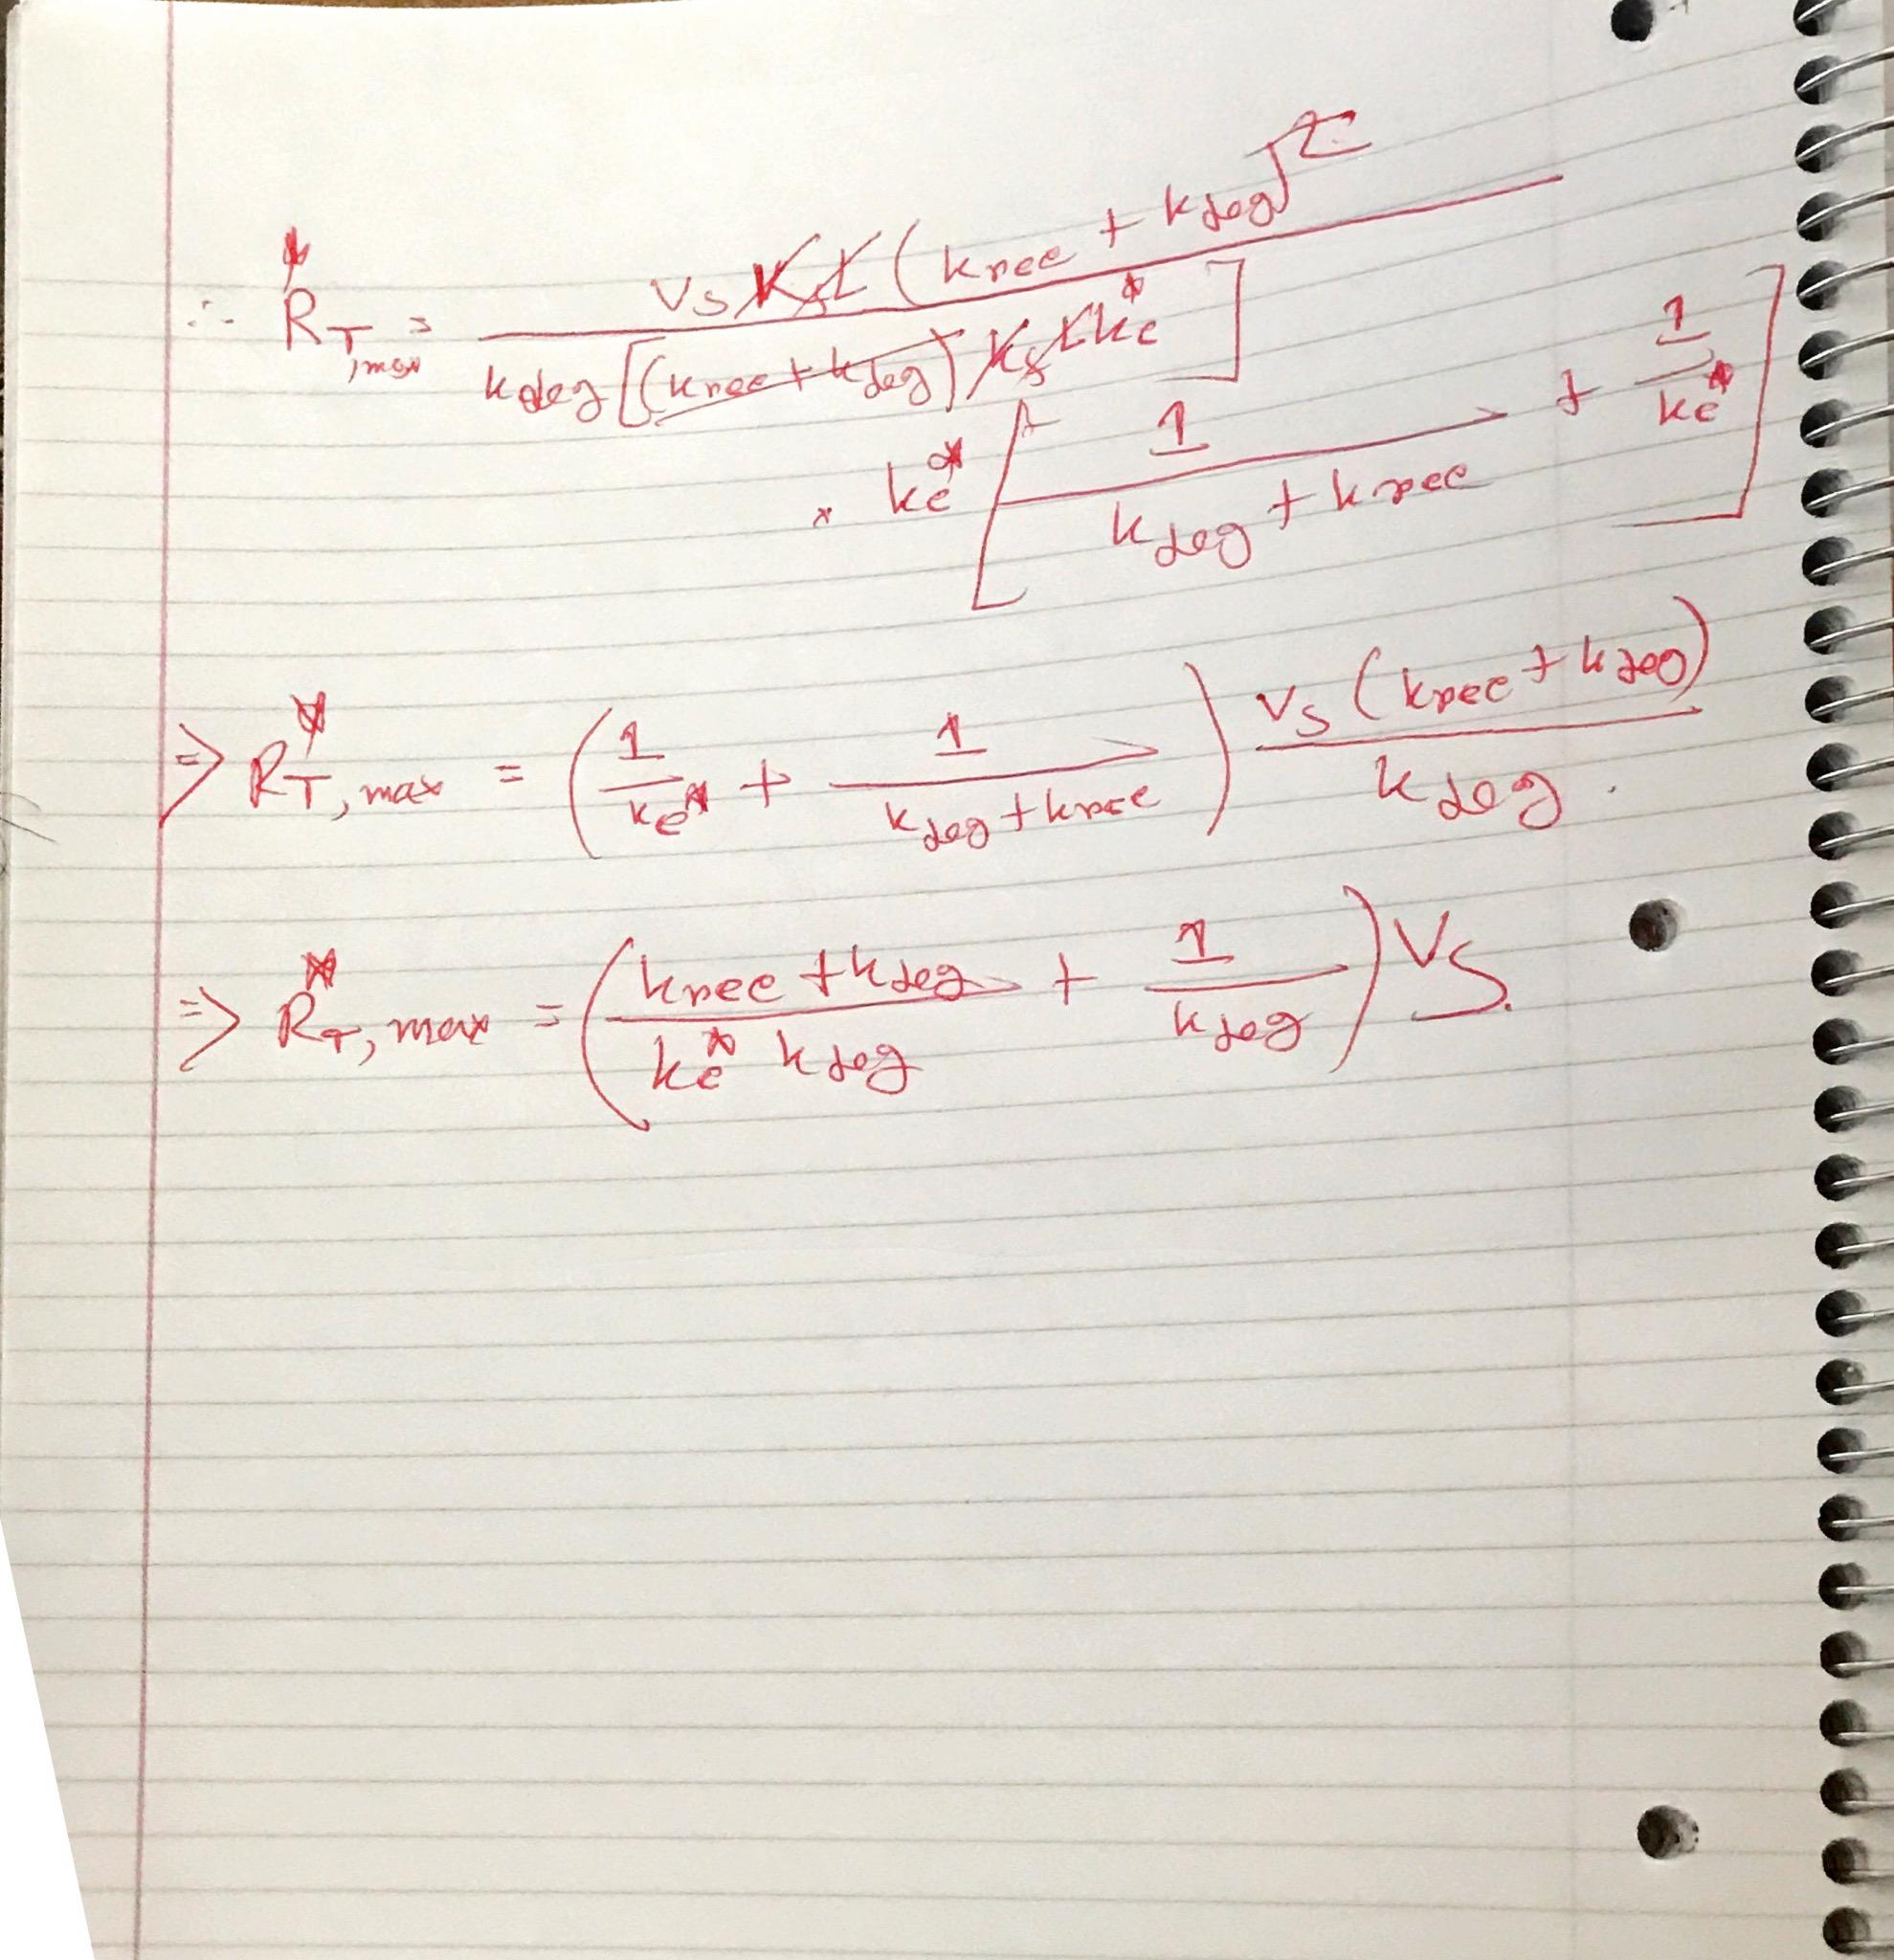 ∴ R*_{T,max} = \frac{V_S K_S L (k_{rec} + k_{deg})^2}{k_{deg} [(k_{rec} + k_{deg}) K_S L k_e^*]}
× k_e^* [ \frac{1}{k_{deg} + k_{rec}} + \frac{1}{k_e^*} ]
⇒ R*_{T,max} = ( \frac{1}{k_e^*} + \frac{1}{k_{deg} + k_{rec}} ) \frac{V_S (k_{rec} + k_{deg})}{k_{deg}} .
⇒ R*_{T,max} = ( \frac{k_{rec} + k_{deg}}{k_e^* k_{deg}} + \frac{1}{k_{deg}} ) V_S.